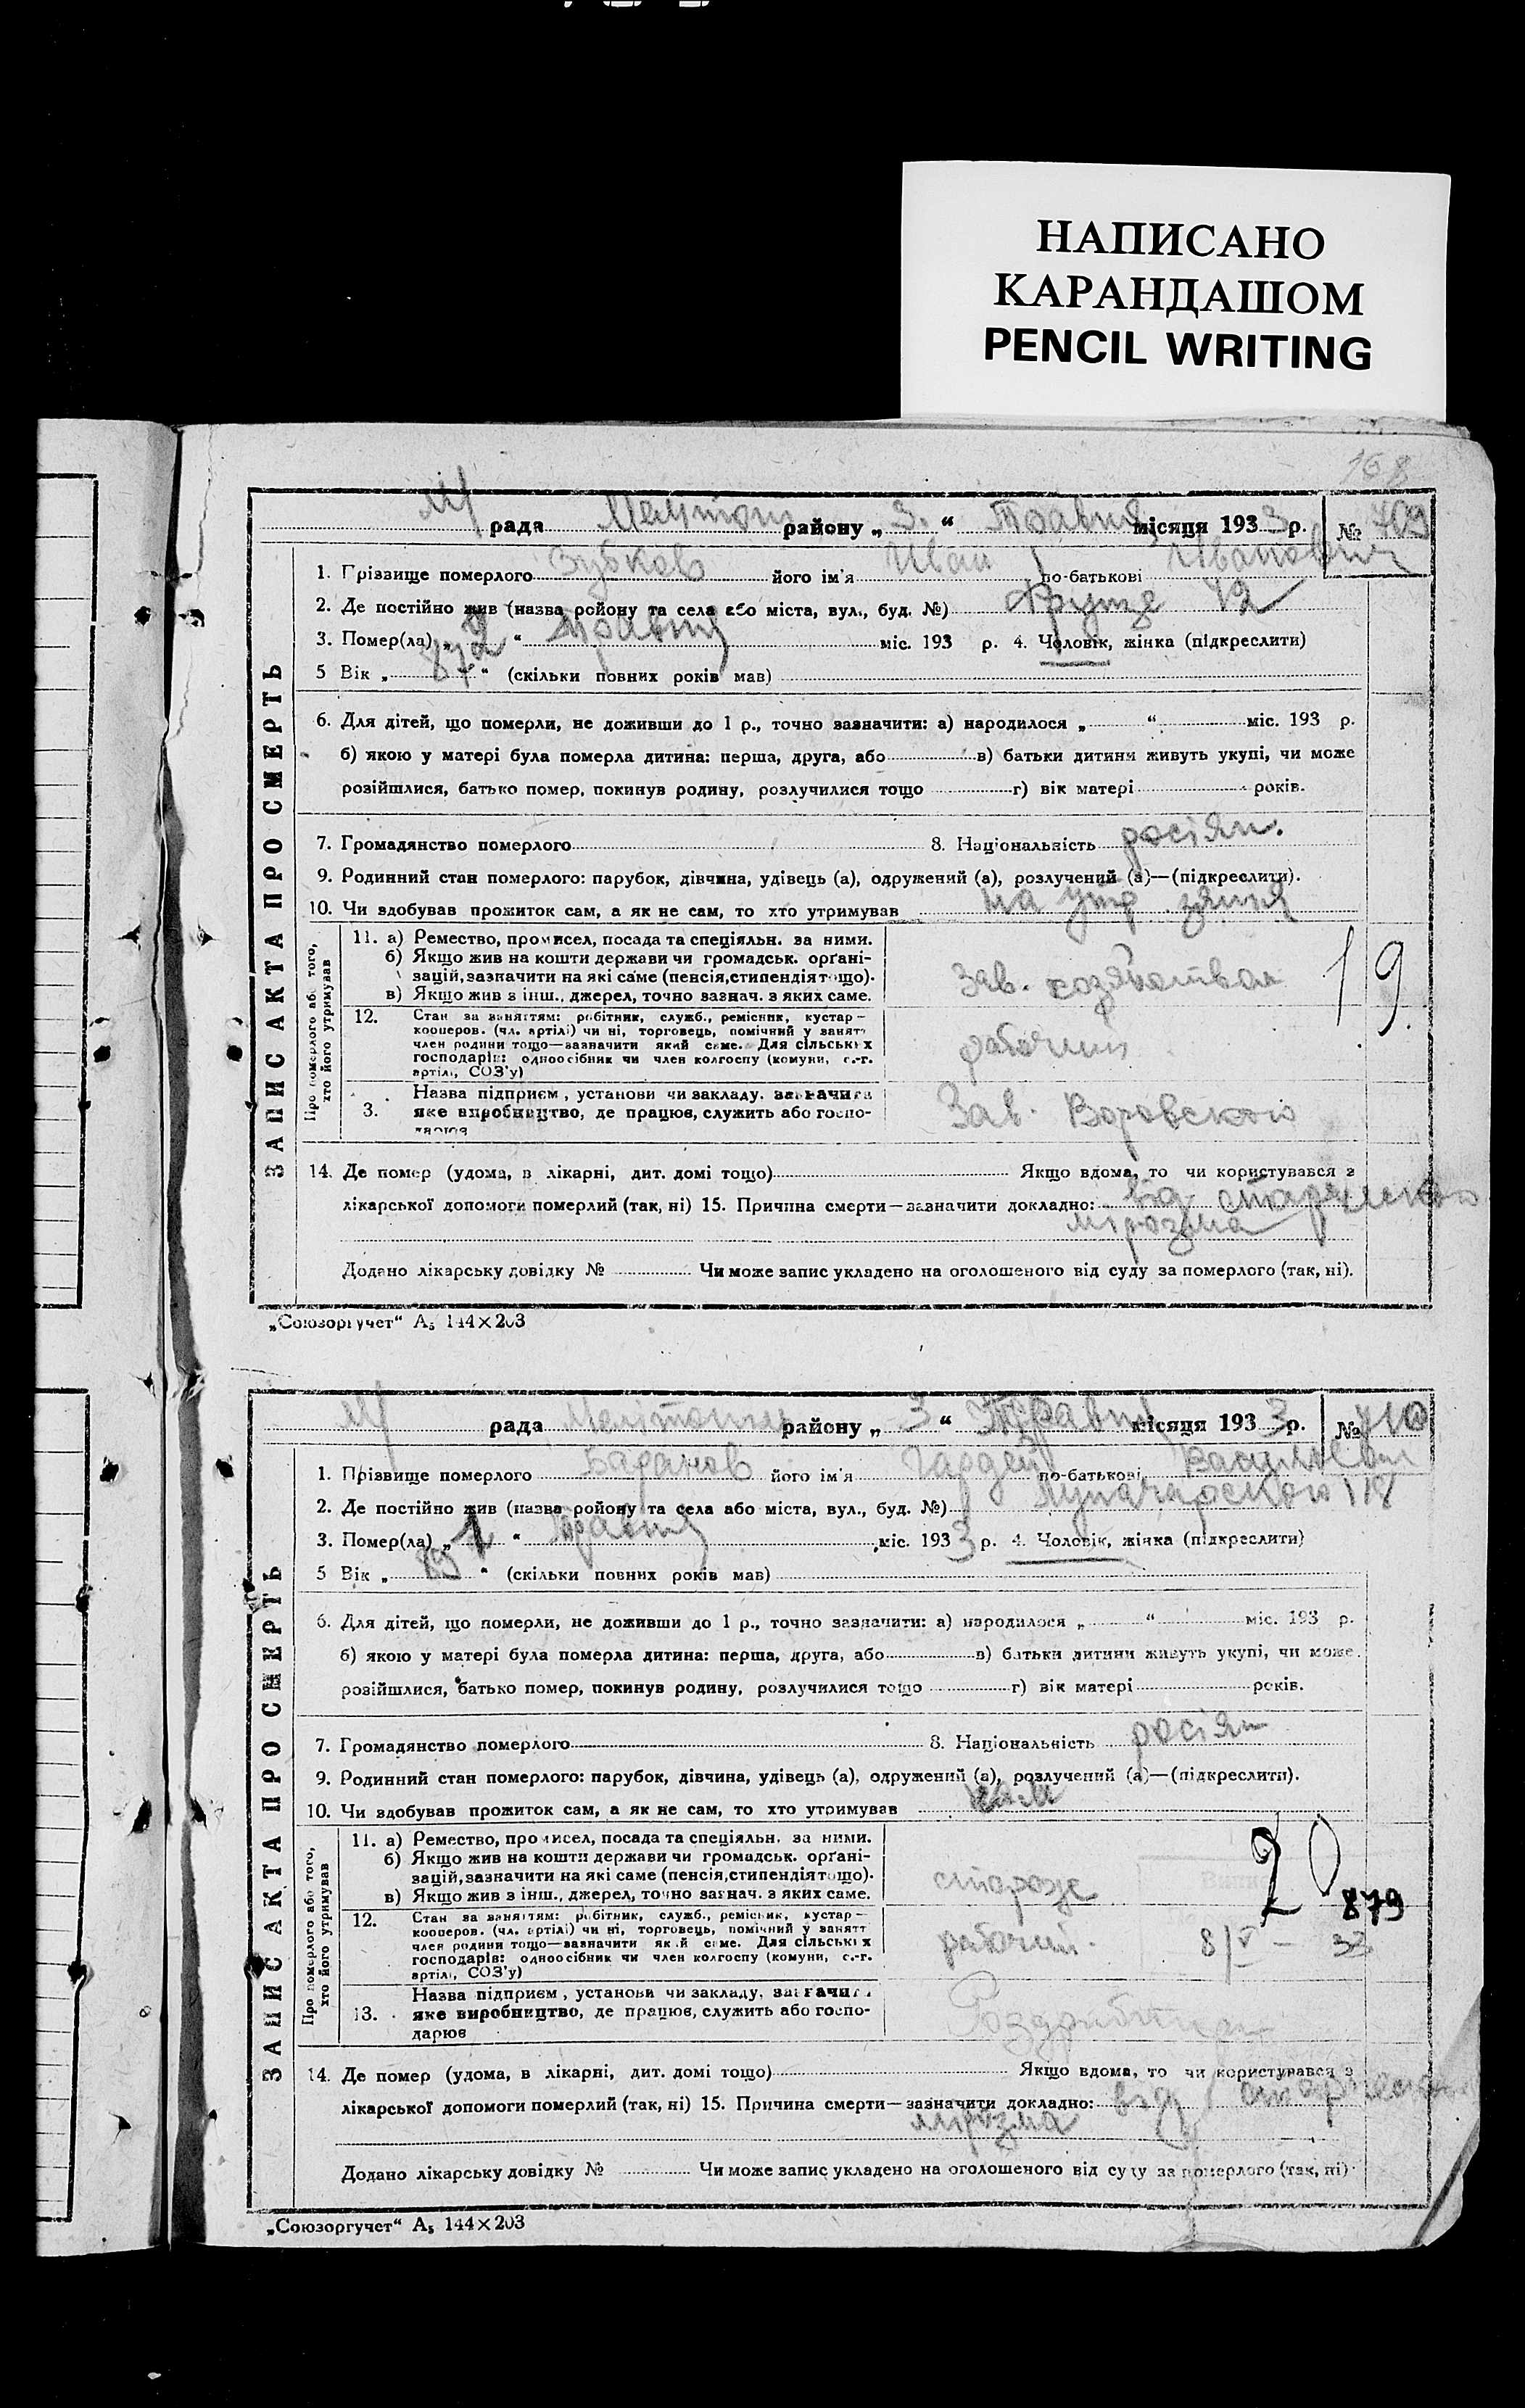 НАПИСАНО
КАРАНДАШОМ
PENCIL WRITING
168
М/ рада Мелітоп району „ 3. “ Травня місяця 1933 р. № 709
1. Прізвище померлого Зубков його ім'я Иван по-батькові Иванович
2. Де постійно жив (назва ройону та села або міста, вул., буд. №) Фрунзе 12
3. Помер(ла) „ 2 “ травня міс. 193 р. 4. Чоловік, жінка (підкреслити)
5 Вік „ “ (скільки повних років мав)
6. Для дітей, що померли, не доживши до 1 р., точно зазначити: а) народилося „ “ міс. 193 р.
б) якою у матері була померла дитина: перша, друга, або в) батьки дитини живуть укупі, чи може
розійшлися, батько помер, покинув родину, розлучилися тощо г) вік матері років.
7. Громадянство померлого 8. Національність росіян.
9. Родинний стан померлого: парубок, дівчина, удівець (а), одружений (а), розлучений (а)—(підкреслити).
10. Чи здобував прожиток сам, а як не сам, то хто утримував на утр. зятя
ЗАПИС АКТА ПРО СМЕРТЬ
Про померлого або того, хто його утримував
11. а) Ремество, промисел, посада та спеціяльн. за ними.
б) Якщо жив на кошти держави чи громадськ. орґані-
зацій, зазначити на які саме (пенсія, стипендія тощо).
в) Якщо жив з інш., джерел, точно зазнач. з яких саме.
Зав. хозяйством
19.
12. Стан за заняттям: робітник, служб., ремісник, кустар —
кооперов. (чл. артілі) чи ні, торговець, помічний у занятт
член родини тощо—зазначити який саме. Для сільських
господарів: одноосібник чи член колгоспу (комуни, с.-г.
артілі, СОЗ'у)
рабочий
3. Назва підприєм, установи чи закладу, зазначити
яке виробництво, де працює, служить або госпо-
дарює
Зав. Воровского
14. Де помер (удома, в лікарні, дит. домі тощо) Якщо вдома, то чи користувався з
лікарської допомоги померлий (так, ні) 15. Причина смерти—зазначити докладно: від старческого
мірозма
Додано лікарську довідку № Чи може запис укладено на оголошеного від суду за померлого (так, ні).
„Союзоргучет“ А₅ 144×203
М/ рада Мелітопль району „ 3 “ Травня місяця 1933 р. № 710
1. Прізвище померлого Баранов його ім'я Гордей по-батькові Васильевич
2. Де постійно жив (назва ройону та села або міста, вул., буд. №) Луначарского 118
3. Помер(ла) „ 1 “ травня міс. 1933 р. 4. Чоловік, жінка (підкреслити)
5 Вік „ 89 “ (скільки повних років мав)
6. Для дітей, що померли, не доживши до 1 р., точно зазначити: а) народилося „ “ міс. 193 р.
б) якою у матері була померла дитина: перша, друга, або в) батьки дитини живуть укупі, чи може
розійшлися, батько помер, покинув родину, розлучилися тощо г) вік матері років.
7. Громадянство померлого 8. Національність росіян
9. Родинний стан померлого: парубок, дівчина, удівець (а), одружений (а), розлучений (а)—(підкреслити).
10. Чи здобував прожиток сам, а як не сам, то хто утримував сам
ЗАПИС АКТА ПРО СМЕРТЬ
Про померлого або того, хто його утримував
11. а) Ремество, промисел, посада та спеціяльн. за ними.
б) Якщо жив на кошти держави чи громадськ. орґані-
зацій, зазначити на які саме (пенсія, стипендія тощо).
в) Якщо жив з інш., джерел, точно зазнач. з яких саме.
сторож
20
879
12. Стан за заняттям: робітник, служб., ремісник, кустар —
кооперов. (чл. артілі) чи ні, торговець, помічний у занятт
член родини тощо—зазначити який саме. Для сільських
господарів: одноосібник чи член колгоспу (комуни, с.-г.
артілі, СОЗ'у)
рабочий. 8/V — 33
13. Назва підприєм, установи чи закладу, зазначити
яке виробництво, де працює, служить або госпо-
дарює
14. Де помер (удома, в лікарні, дит. домі тощо) Якщо вдома, то чи користувався з
лікарської допомоги померлий (так, ні) 15. Причина смерти—зазначити докладно: від старческого
мірозма
Додано лікарську довідку № Чи може запис укладено на оголошеного від суду за померлого (так, ні)
„Союзоргучет“ А₅ 144×203